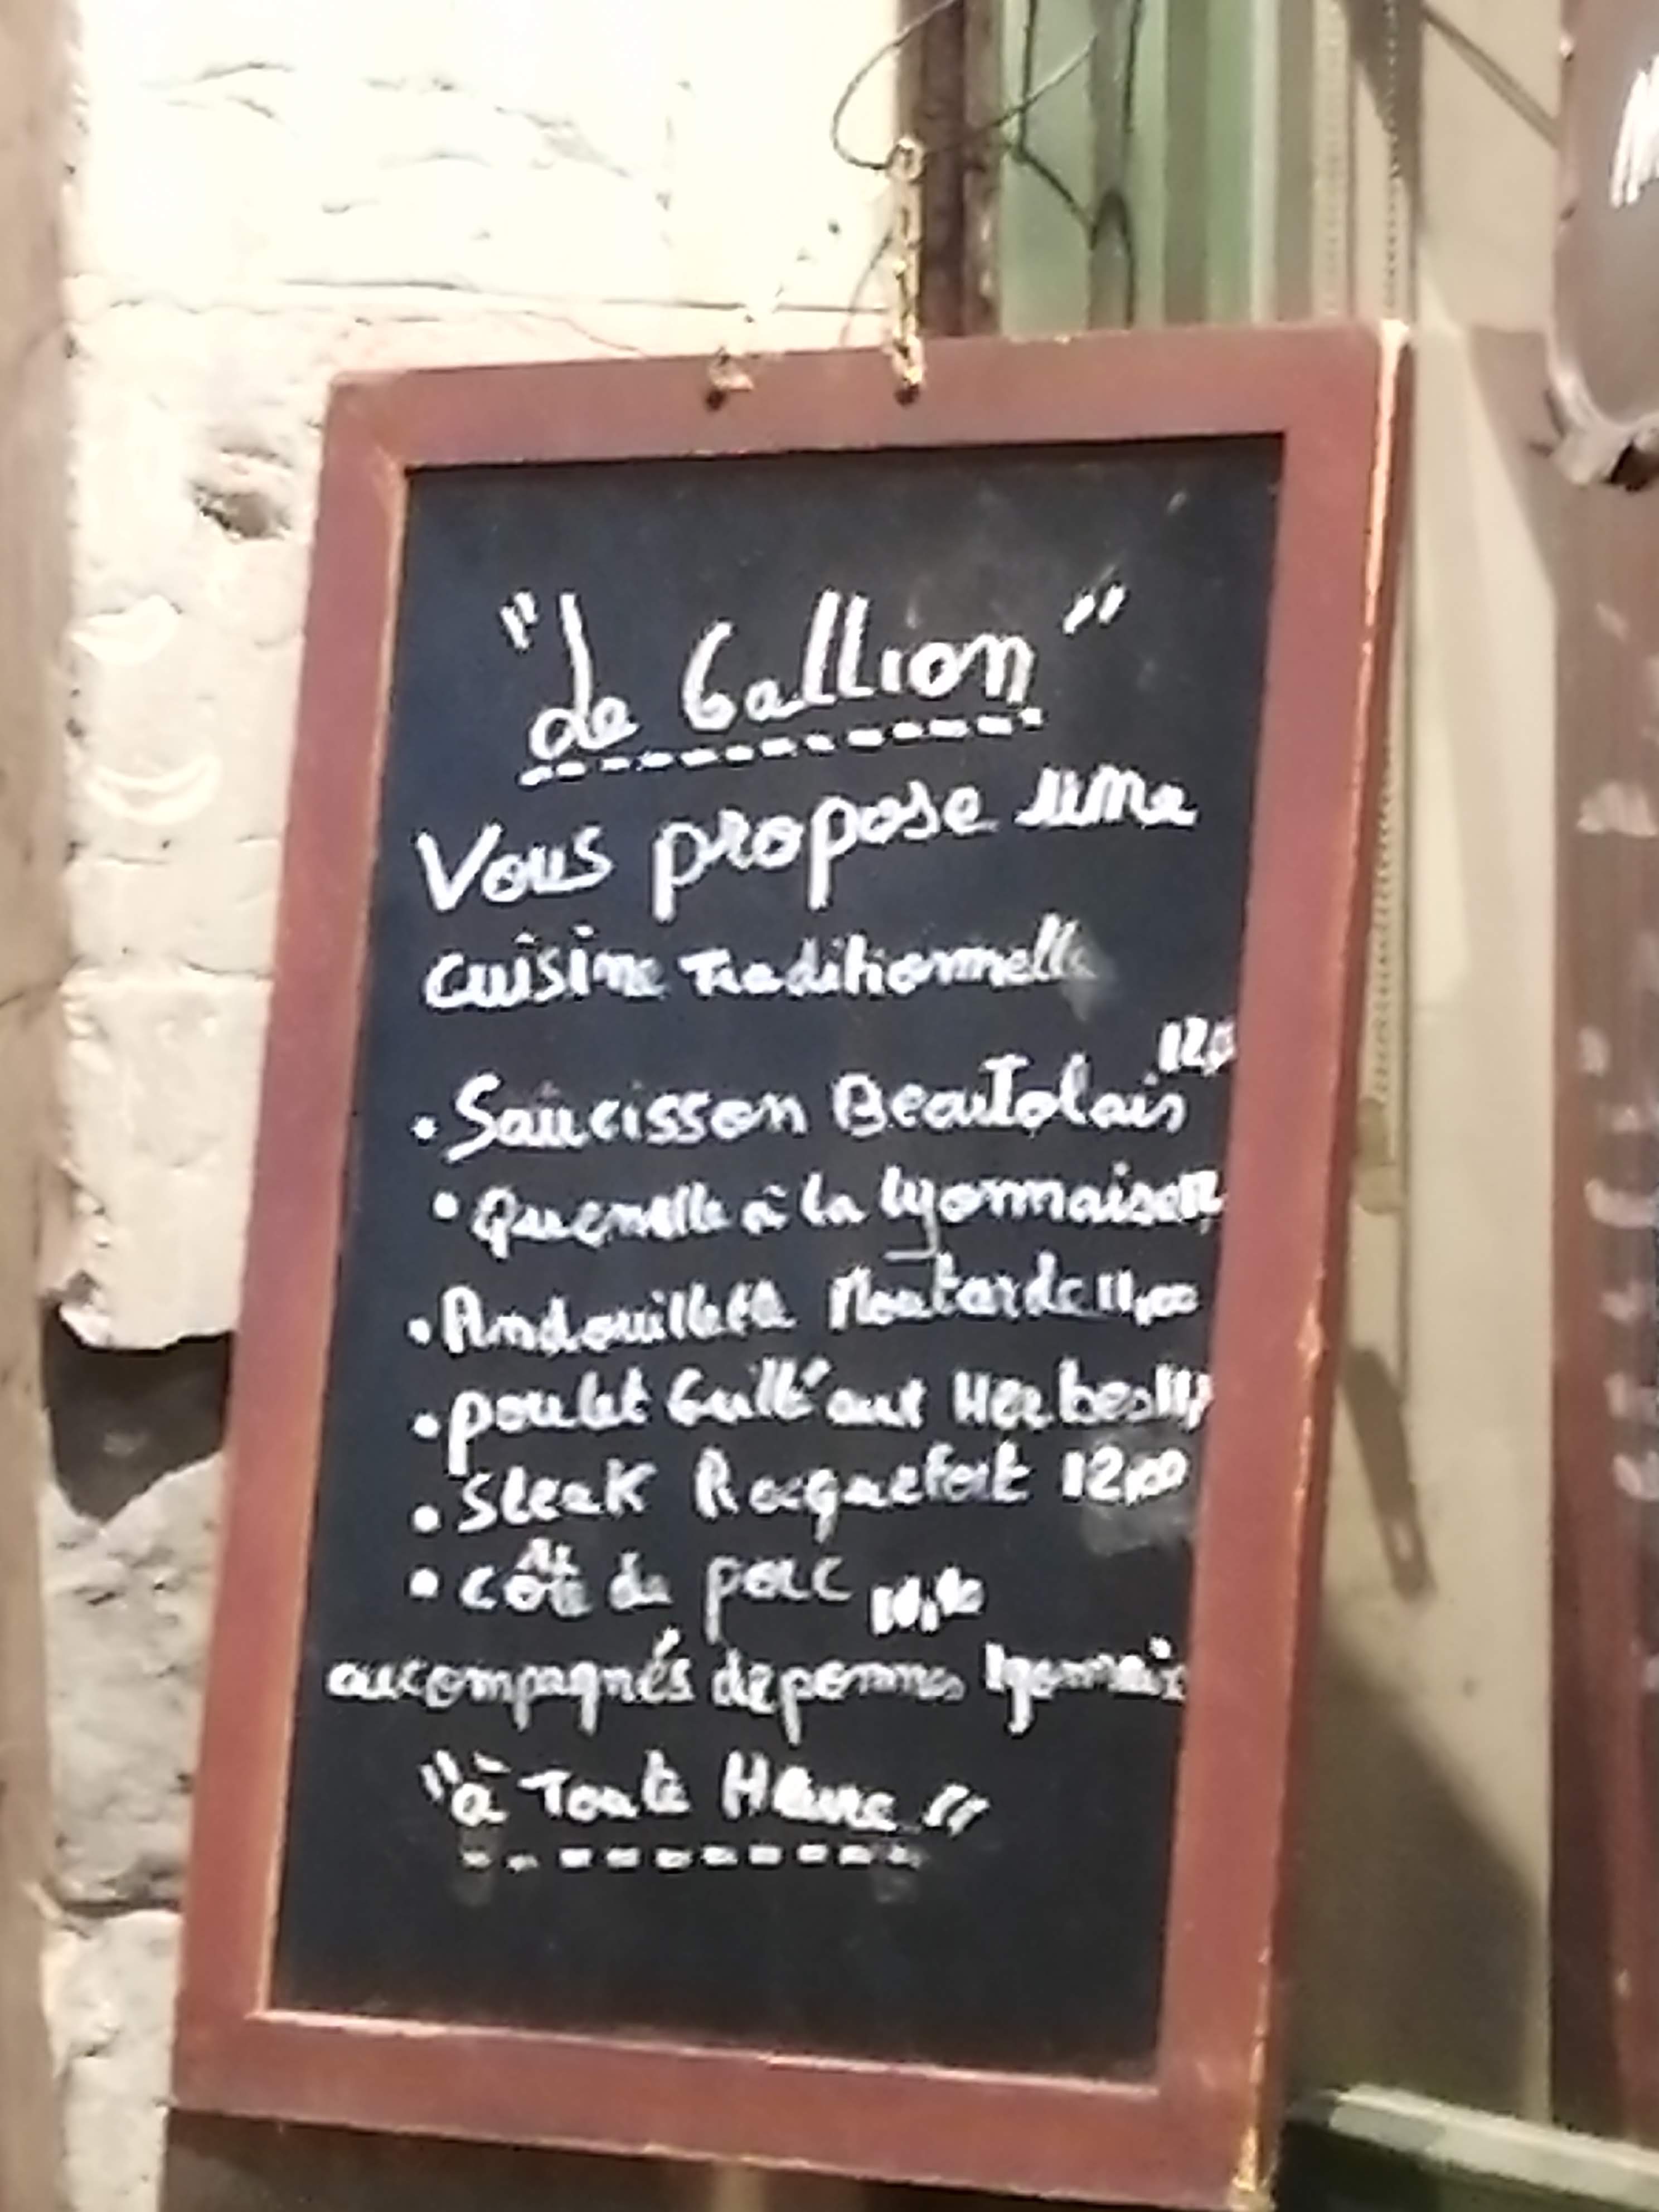 "Le Gallion"
Vous propose une
cuisine Traditionnelle
12,0
• Saucisson Beautolais
• Quenelle à la lyonnaise 12
• Andouillette Moutarde 11,00
• poulet Grillé aux Herbes 11,
• Steak Roquefort 12,00
• côte de porc
accompagnés de pommes lyonnais
"à Toute Heure"